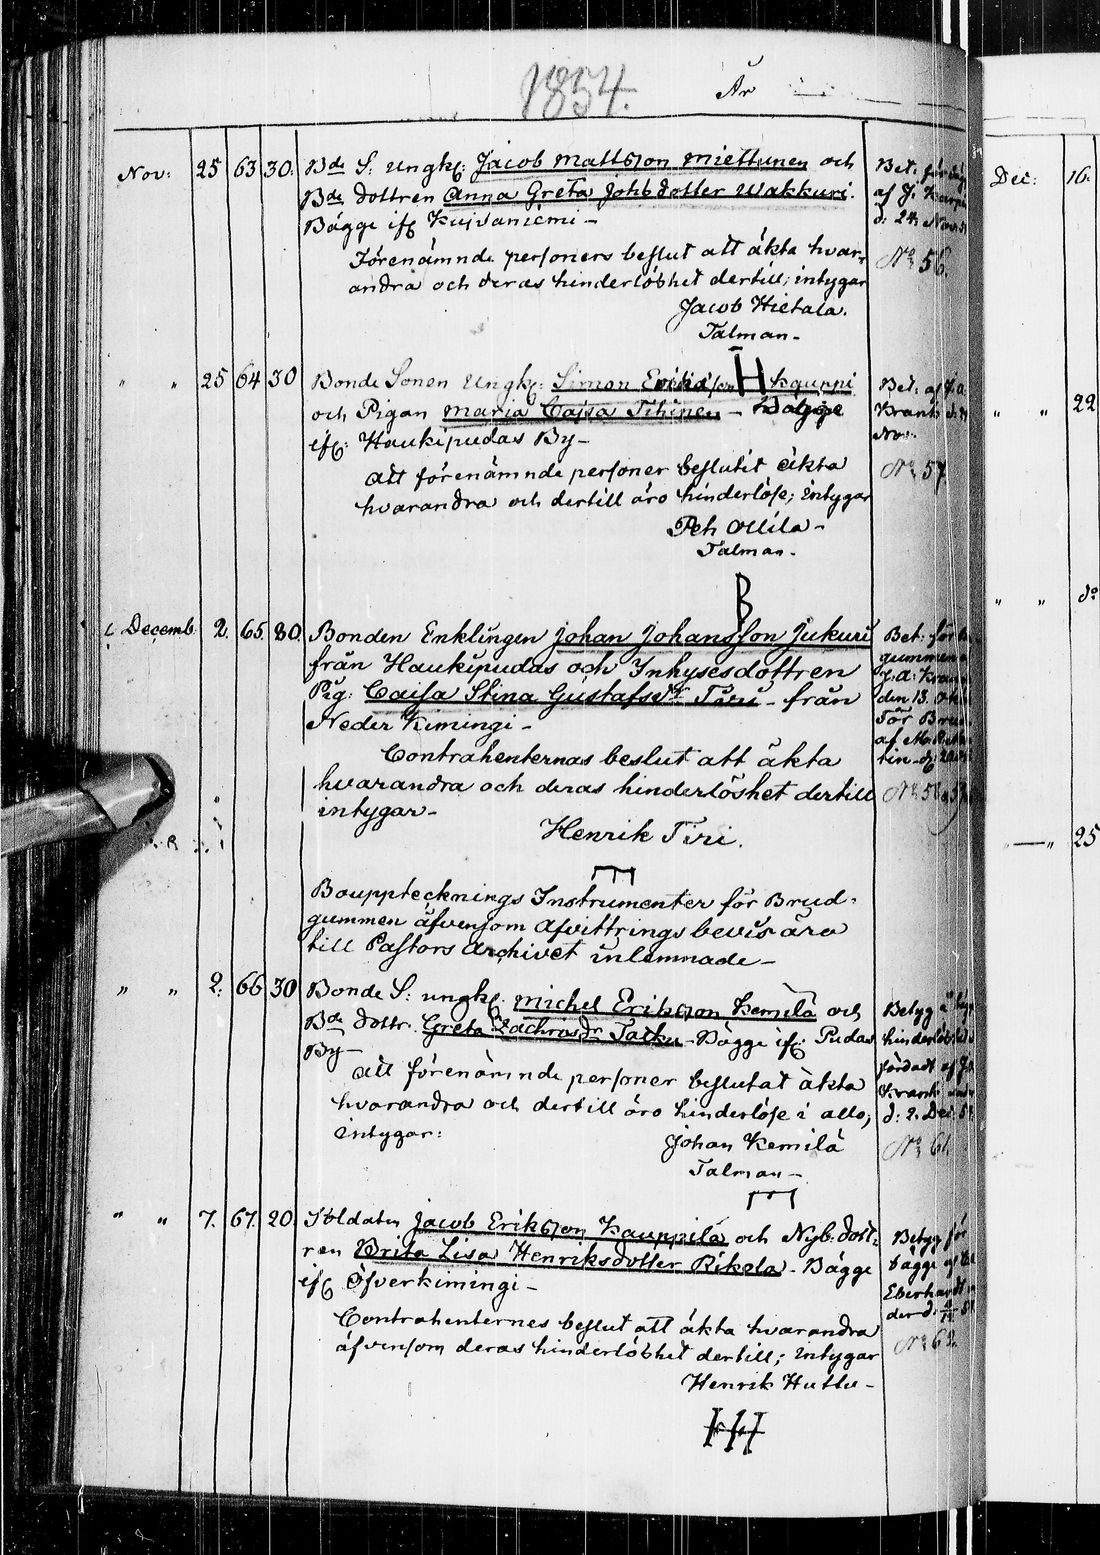 1854.
År
Nov: 25 63 30. Bde S: Ungk: Jacob Mattsson Miettunen och
Bde dottren Anna Greta Johsdotter Wakkuri.
Bägge ifr Kuivaniemi –
Förenämnde personers beslut att äkta hvar-
andra och deras hinderlöshet dertill; intygar
Jacob Hietala.
Talman –
Bet: för
af J.
d: 24 Nov:
No 56.
" " 25 64 30 Bonde Sonen Ungk: Simon Kauppi
och Pigan Maria Cajsa Tihinen – Bägge
ifr: Haukipudas By –
att förenämnde personer beslutit äkta
hvarandra och dertill äro hinderlöse; intygar
Peh Ollila –
Talman –
Bet: af J. A.
Krank d:
Nov:
No 57
B
Decemb. 2. 65. 80. Bonden Enklingen Johan Johansson Jukuri
från Haukipudas och Inhysesdottren
Pig: Caisa Stina Gustafsdr Tiri – från
Neder Kimingi –
Contrahenternas beslut att äkta
hvarandra och deras hinderlöshet dertill
intygar –
Henrik Tiri.
Boupptecknings Instrumenter för Brud-
gummen äfvensom afvittrings bevis äro
till Pastors Archivet inlemnade –
Bet: för
gummen
J. A.
den 13.
för
af
No 58
" " 2. 66 30 Bonde S: ungk: Michel Eriksson Kemilä och
Bde dottr. Greta Zachrisdr – Bägge ifr: Pudas
By –
att förenämnde personer beslutat äkta
hvarandra och dertill äro hinderlöse i allo;
intygar:
Johan Kemilä
Talman –
Betyg
af J. A.
d: 2. Dec:
No 61.
" " 7. 67. 20. Soldaten Jacob Eriksson Kauppila och Nyb: dott-
ren Brita Lisa Henriksdotter Rikela – Bägge
ifr Öfverkimingi –
Contrahenternes beslut att äkta hvarandra
äfvensom deras hinderlöshet dertill; intygar
Henrik Huttu –
Betyg för
bägge af
Eberhardt
der d:
No 62.
Dec: 16.
" " 22
" " do
–"– " 25